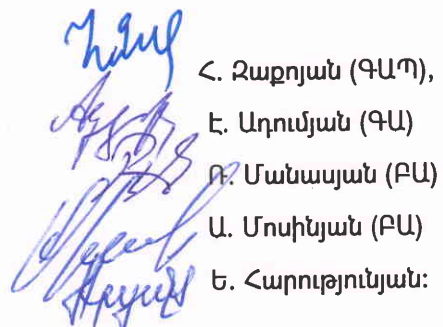 Հ. Զաքոյան (ԳԱՊ),
Է. Ադումյան (ԳԱ)
Ռ. Մանասյան (ԲԱ)
Ա. Մոսինյան (ԲԱ)
Ե. Հարությունյան: